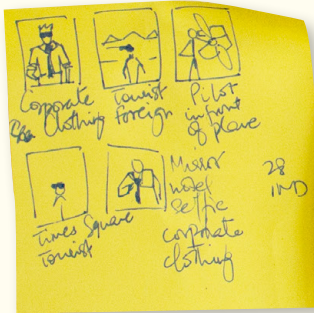 Corporate
Clothing
Tourist
foreign
Pilot
in front
of plane
Times Square
Tourist
Mirror
model
selfie
corporate
clothing
28
IND